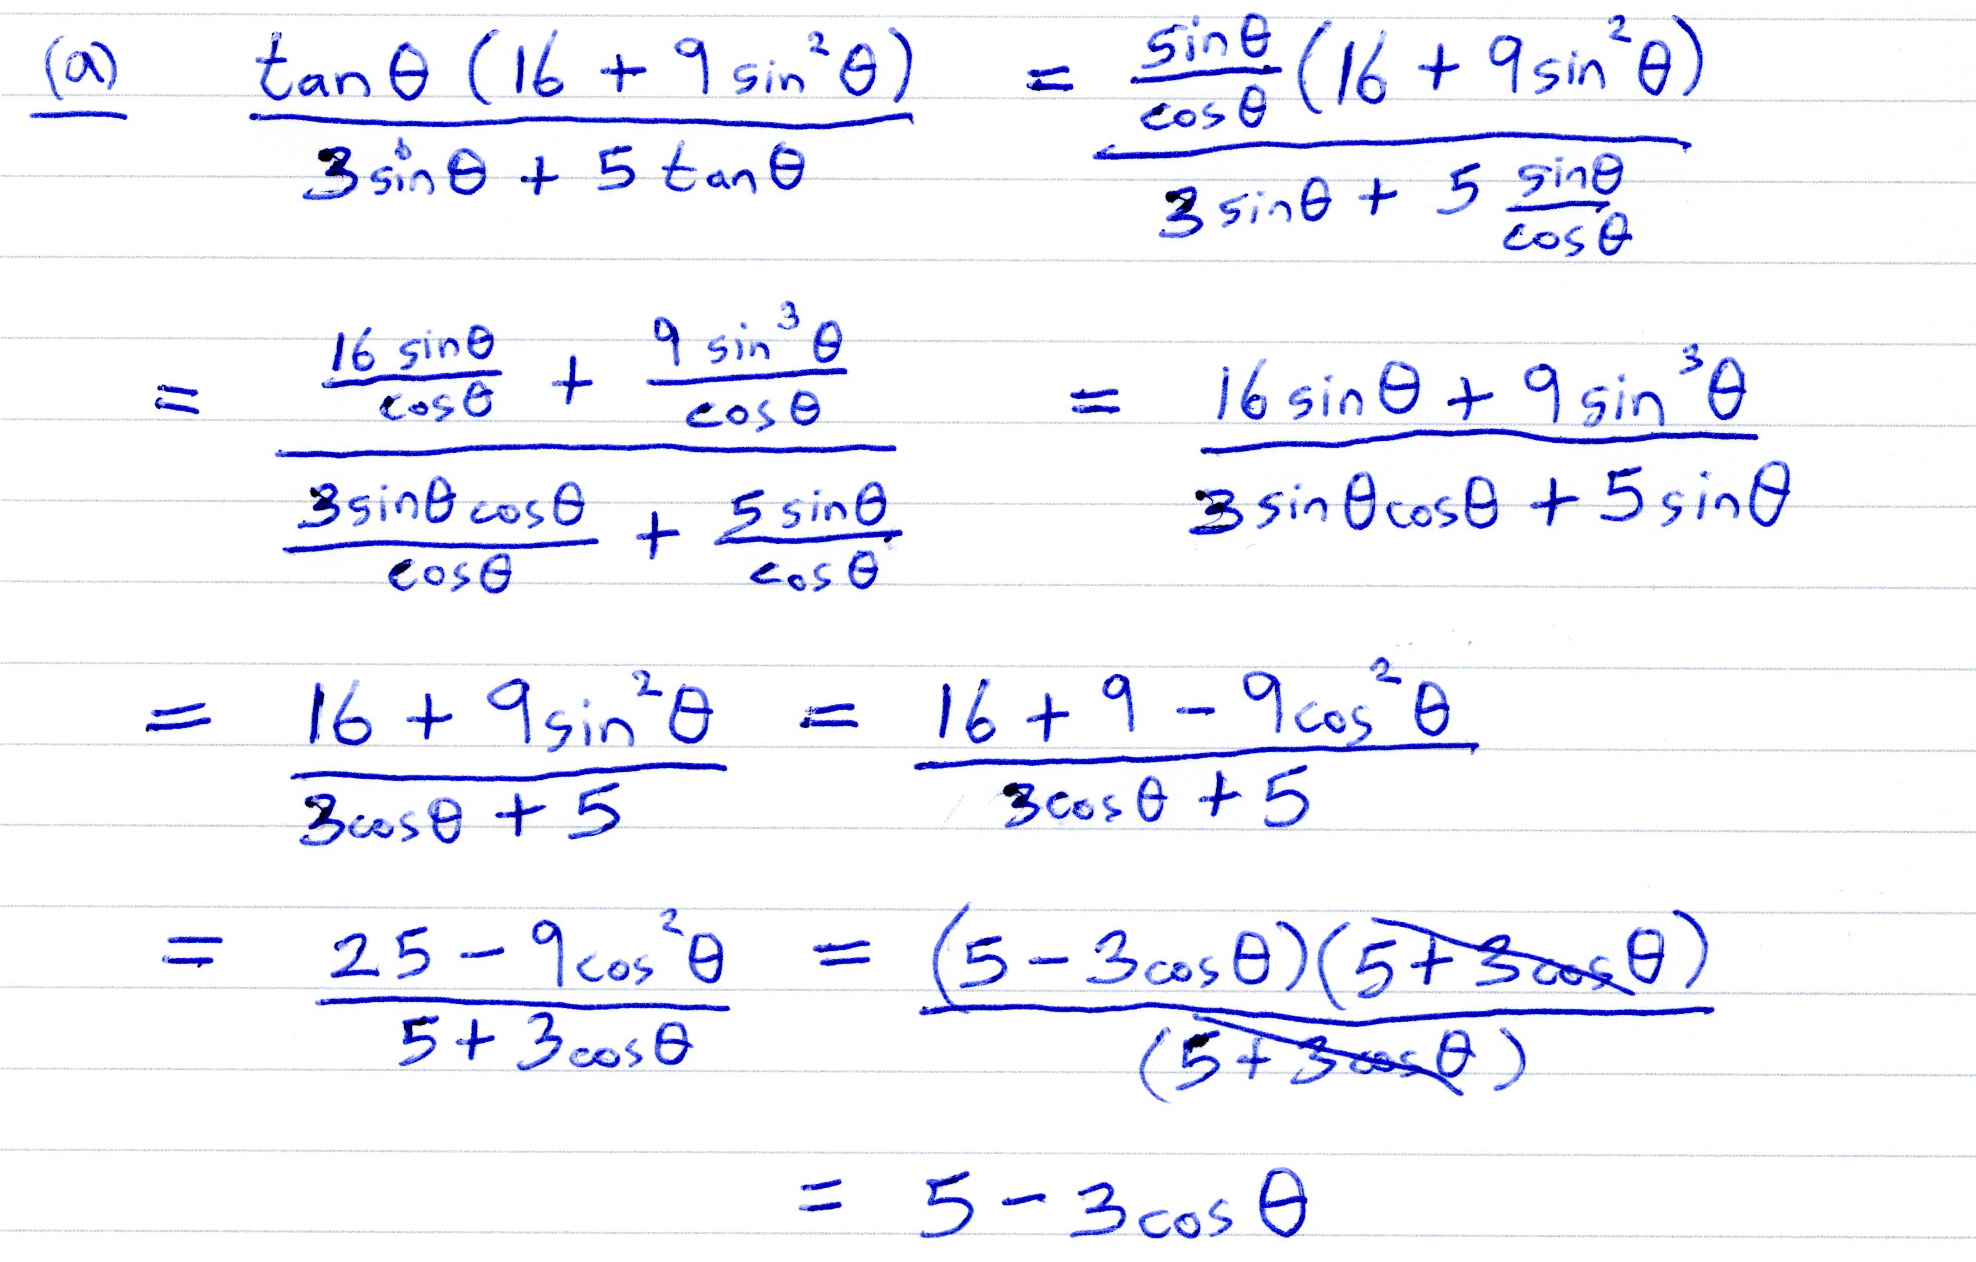 (a) tanθ (16 + 9 sin²θ) / (3 sinθ + 5 tanθ) = (sinθ/cosθ)(16 + 9 sin²θ) / (3 sinθ + 5 sinθ/cosθ)
= (16 sinθ/cosθ + 9 sin³θ/cosθ) / (3 sinθ cosθ/cosθ + 5 sinθ/cosθ) = (16 sinθ + 9 sin³θ) / (3 sinθ cosθ + 5 sinθ)
= (16 + 9 sin²θ) / (3cosθ + 5) = (16 + 9 - 9cos²θ) / (3cosθ + 5)
= (25 - 9cos²θ) / (5 + 3cosθ) = (5 - 3cosθ)(5 + 3cosθ) / (5 + 3cosθ)
= 5 - 3cosθ